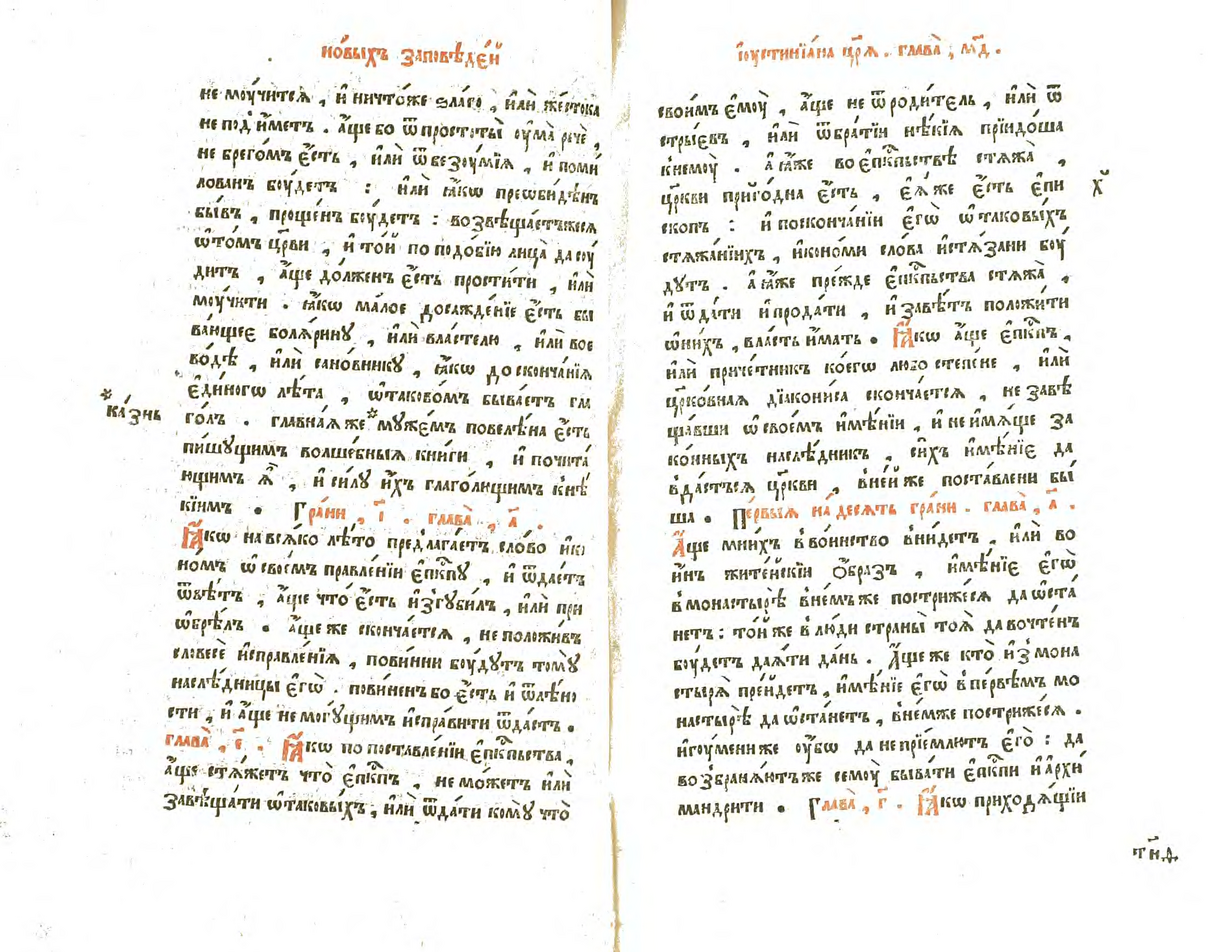 но́выхъ за́повѣдей
не моу́читсѧ , и҆ ничто́же ѕла́го , и҆лѝ же́стока
не под̾и́метъ . а҆́ще бо ѿ простоты̀ оу҆ма̀ речѐ ,
не брего́мъ є҆́сть , и҆лѝ ѿ безꙋ́мїѧ , и҆ поми́
лованъ бꙋ́детъ : и҆лѝ ꙗ҆́кѡ преѡби́дѣнъ
бы́въ , проще́нъ бꙋ́детъ : возвѣща́етъжесѧ
ѡ҆то́мъ цр҃ви , и҆ то́й по подо́бїю лица̀ да сꙋ́
дитъ , а҆́ще до́лженъ є҆́сть прости́ти , и҆лѝ
моу́чити . ꙗ҆́кѡ ма́лое досажде́нїе є҆́сть бы
ва́ющее болѧ́ринꙋ , и҆лѝ вла́стелю , и҆лѝ вое
во́дѣ , и҆лѝ сано́вникꙋ , ꙗ҆́кѡ до сконча́нїѧ
є҆ди́ногѡ лѣ́та , ѡ҆тако́вомъ быва́етъ гл҃
го́лъ . гла́внаѧ же * мꙋже́мъ повелѣ́на є҆́сть
* ка́знь
пи́шꙋщимъ волше́бныѧ кни́ги , и҆ почита́
ющимъ ѧ҆̀ , и҆ си́лꙋ и҆́хъ глаго́лющимъ к̾нѣ́
кїимъ . Гра́ни , і҃ . глава̀ , а҃ .
Ꙗ҆́кѡ на всѧ́ко лѣ́то предлага́етъ сло́во и҆ко
но́мъ ѡ҆ свое́мъ правле́нїи є҆пкⷭ҇пꙋ , и҆ ѿда́етъ
ѿвѣ́тъ , а҆́ще что̀ є҆́сть и҆згꙋби́лъ , и҆лѝ при
ѡ҆брѣ́лъ . а҆́ще же сконча́етсѧ , не положи́въ
словесѐ и҆справле́нїѧ , пови́нни бꙋ́дꙋтъ томꙋ̀
наслѣ́дницы є҆гѡ̀ . пови́ненъ бо є҆́сть и҆ ѿ лѣ́но
сти , и҆ а҆́ще не могꙋ́щимъ и҆спра́вити ѿда́стъ .
глава̀ , є҃ . Ꙗ҆́кѡ по поставле́нїи є҆пкⷭ҇пьства ,
а҆́ще стѧ́жетъ что̀ є҆пкⷭ҇пъ , не мо́жетъ и҆лѝ
завѣща́ти ѡ҆таковы́хъ , и҆лѝ ѿда́ти комꙋ̀ что̀
і҆ꙋстинїа́на цр҃ѧ̀ . глава̀ , м҃д .
свои́мъ є҆мꙋ̀ , а҆́ще не ѿ роди́тель , и҆лѝ ѿ
стры́евъ , и҆лѝ ѿ бра́тїи нѣ́кїѧ прїидо́ша
к̾немꙋ̀ . а҆ ꙗ҆́же во є҆пкⷭ҇пьствѣ стѧжа̀ ,
цр҃кви приго́дна є҆́сть , є҆ѧ́же є҆́сть є҆пи
х҃
скопъ : и҆ по сконча́нїи є҆гѡ̀ ѡ҆таковы́хъ
стѧжа́нїихъ , и҆коно́ми сло́ва и҆стѧ́зани бꙋ́
дꙋтъ . а҆ ꙗ҆́же пре́жде є҆пкⷭ҇пьства стѧжа̀ ,
и҆ ѿда́ти и҆ прода́ти , и҆ завѣ́тъ положи́ти
ѡ҆ни́хъ , вла́сть и҆́мать . Ꙗ҆́кѡ а҆́ще є҆пкⷭ҇пъ ,
и҆лѝ приче́тникъ коегѡ̀ любо степе́не , и҆лѝ
цр҃ко́внаѧ дїакони́са сконча́етсѧ , не завѣ
ща́вши ѡ҆ свое́мъ и҆мѣ́нїи , и҆ не и҆мѧ́ще за
ко́нныхъ наслѣ́дникъ , си́хъ и҆мѣ́нїе да
в̾да́стъсѧ цр҃кви , в̾не́йже поста́влени бы́
ша . Пе́рвыѧ на́десѧть гра́ни . глава̀ , а҃ .
А҆́ще мни́хъ в̾ во́инство вни́детъ , и҆лѝ во
и҆́нъ жите́йскїи ѻ҆́бразъ , и҆мѣ́нїе є҆гѡ̀
в̾ монастырѣ̀ в̾не́мъже постри́жесѧ да ѡ҆ста́
нетъ : то́йже в̾ лю́ди страны̀ тоѧ̀ да вочте́нъ
бꙋ́детъ даѧ́ти да́нь . А҆́ще же кто̀ и҆з̾ мона
стырѧ̀ пре́йдетъ , и҆мѣ́нїе є҆гѡ̀ в̾ пе́рвѣмъ мо
настырѣ̀ да ѡ҆ста́нетъ , в̾не́мже постри́жесѧ .
и҆гꙋ́мени же оу҆́бѡ да не прїе́млютъ є҆го̀ : да
возбранѧ́ютъже семꙋ̀ быва́ти є҆пкⷭ҇пи и҆ а҆рхи
мандри́ти . Глава̀ , г҃ . Ꙗ҆́кѡ приходѧ́щїи
тн҃д